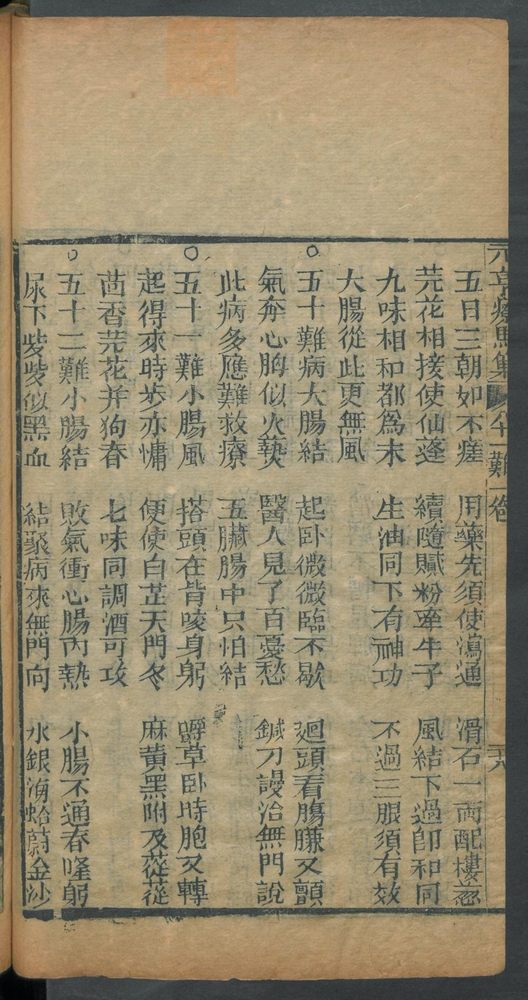 元亨療馬集 八十一難 一卷
五日三朝如不瘥 用藥先須使瀉通 滑石一兩配樓葱
芫花相接使仙蓬 續隨膩粉牽牛子 風結下過即和同
九味相和都爲末 生油同下有神功 不過三服須有效
大腸從此更無風
五十難病大腸結 起卧微微臨不歇 迴頭看膓臁又顫
氣奔心胸似火𤍠 醫人見了百憂愁 鍼刀謾治無門說
此病多應難救療 五臟腸中只怕結
五十一難小腸風 搭頭在背唆身躬 嚼草卧時胞又轉
起得來時步亦慵 便使白芷天門冬 麻黃黑附及蓯蓉
茴香芫花并狗脊 七味同調酒可攻
五十二難小腸結 敗氣衝心腸內熱 小腸不通脊隆躬
尿下炭炭似黑血 結聚病來無門向 水銀海蛤蔚金沙